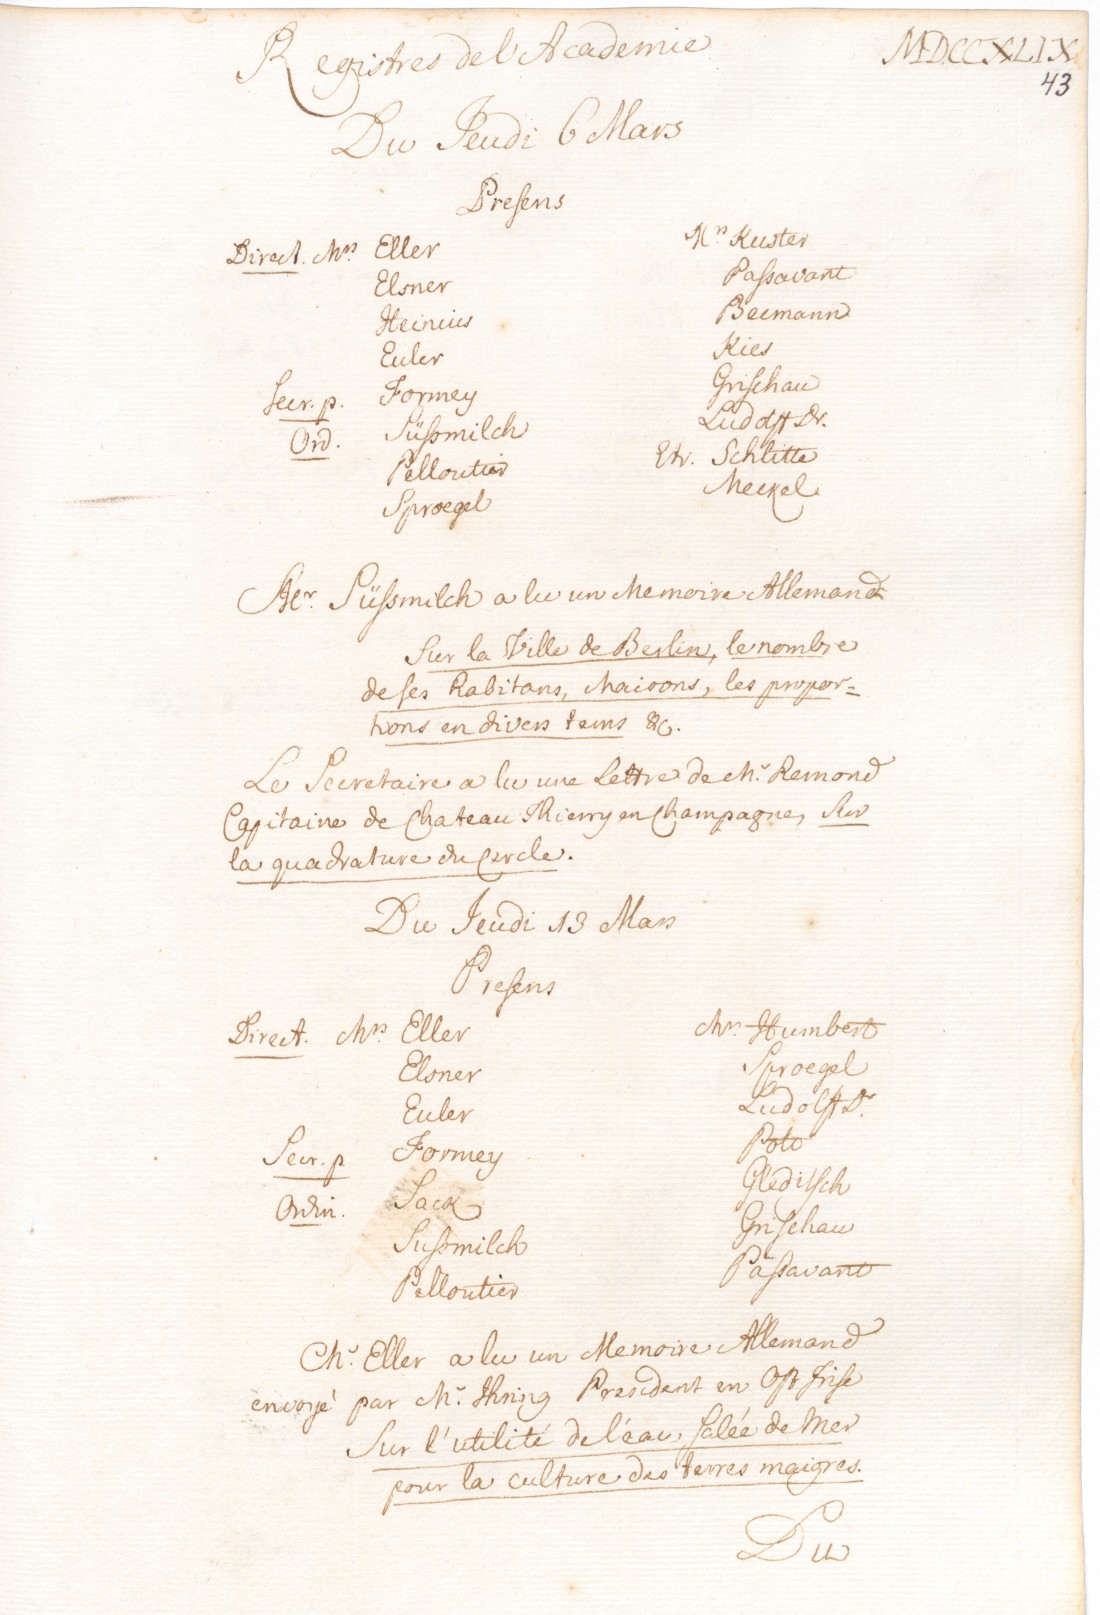 Registres de l'Academie MDCCXLIX
43
Du Jeudi 6 Mars
Presens
Direct. Mrs Eller
Elsner
Heinius
Euler
Secr. p. Formey
Ord. Süssmilch
Pelloutier
Sproegel
Mrs Kuster
Passavant
Becmann
Kies
Grischau
Ludolff Dr.
Etr. Schlitte
Meckel
Mr. Süssmilch a lu un Memoire Allemand
Sur la Ville de Berlin, le nombre
de ses Habitans, Maisons, les propor=
tions en divers tems &c.
Le Secretaire a lu une Lettre de Mr. Remond
Capitaine de Chateau Thierry en Champagne, Sur
la quadrature du Cercle.
Du Jeudi 13 Mars
Presens
Direct. Mrs. Eller
Elsner
Euler
Secr. p Formey
Ordin. Sack
Sussmilch
Pelloutier
Mrs. Humbert
Sproegel
Ludolff Dr.
Pott
Gleditsch
Grischau
Passavant
Mr. Eller a lu un Memoire Allemand
envoyé par Mr. Ihring President en Ost Frise
Sur l'utilité de l'eau salée de Mer
pour la culture des terres maigres.
Du